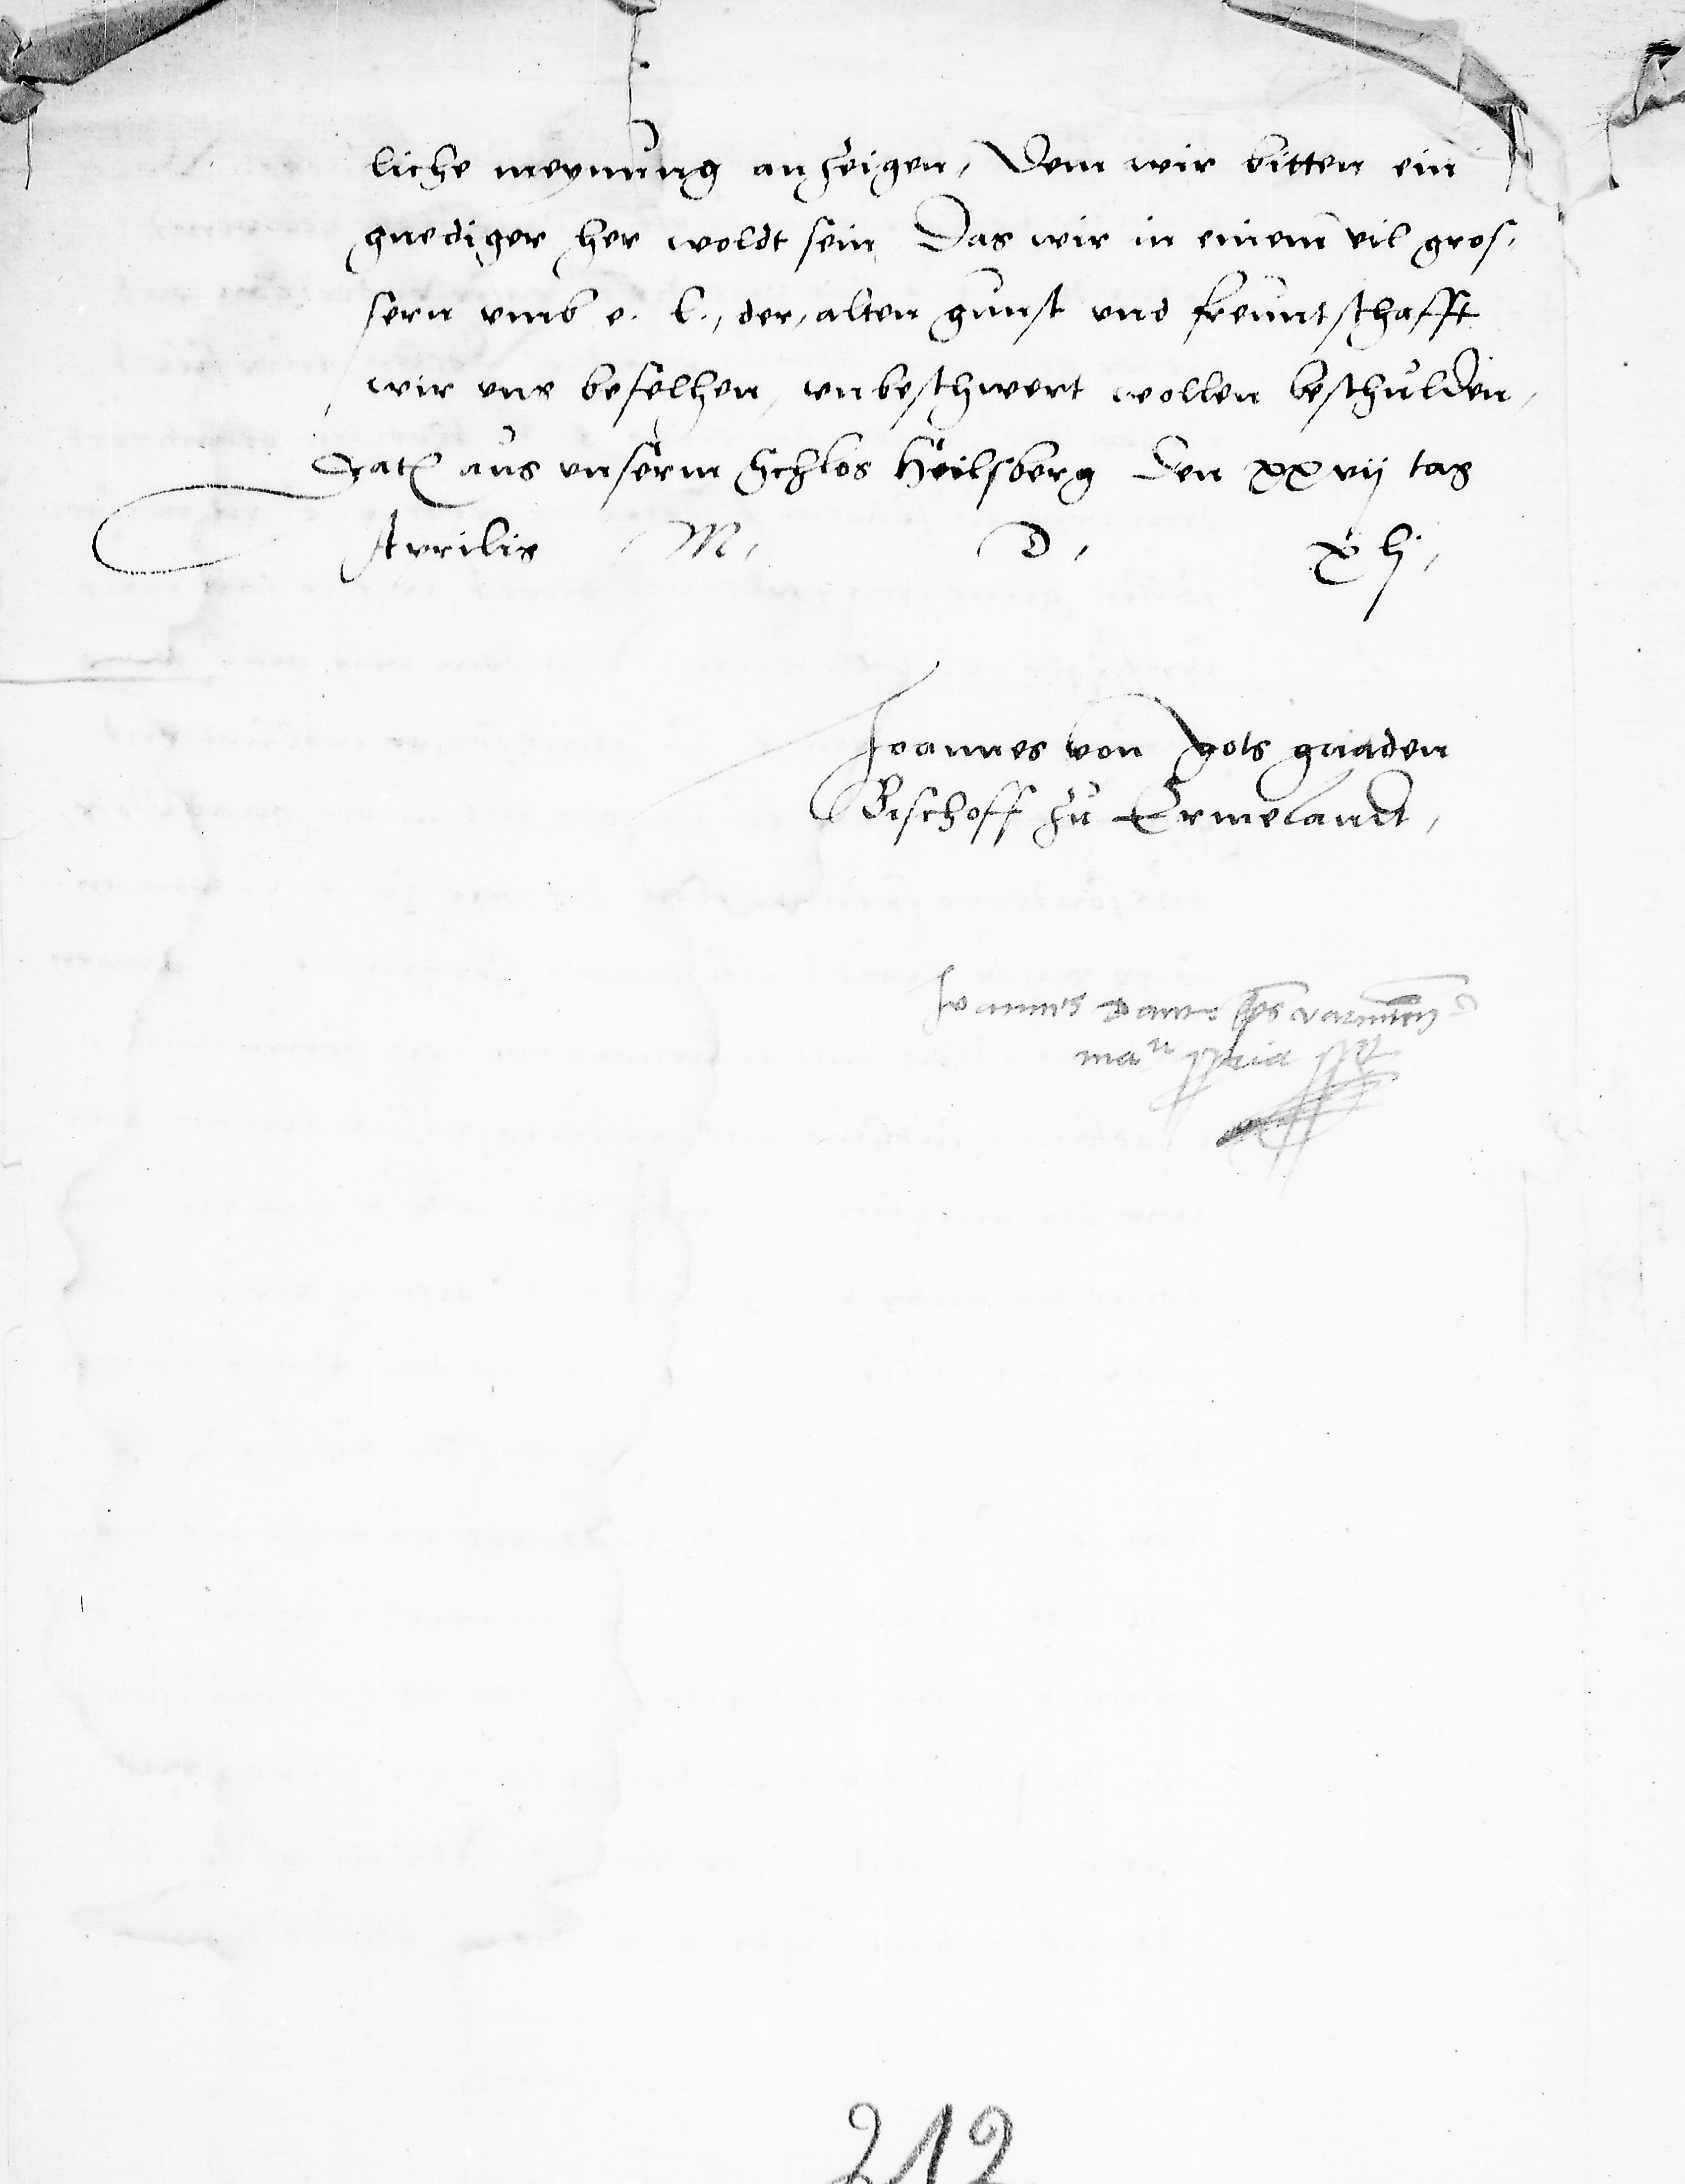 liche meynung anzeigen, Dem wir bitten ein
gnediger her woldt sein, Das wir in einem vil gros,
sern vmb e. l., der, alten gunst vnd freuntschafft
wir vns befelhen, vnbeschwert wollen beschulden,
Dat aus vnserm Schlos Heilsberg den xxvij tag
Aprilis M, D, xlj,
Joannes von gots gnaden
Bischoff zu Ermelandt,
Joannes Dant. Eps Varmien
manu ppria sspt
212